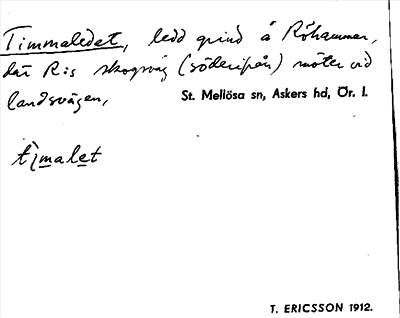 Timmaledet, ledd grind å Röhammar,
där R:s skogsväg (söderifrån) möter vid
landsvägen,
St. Mellösa sn, Askers hd, Ör. l.
T. ERICSSON 1912.